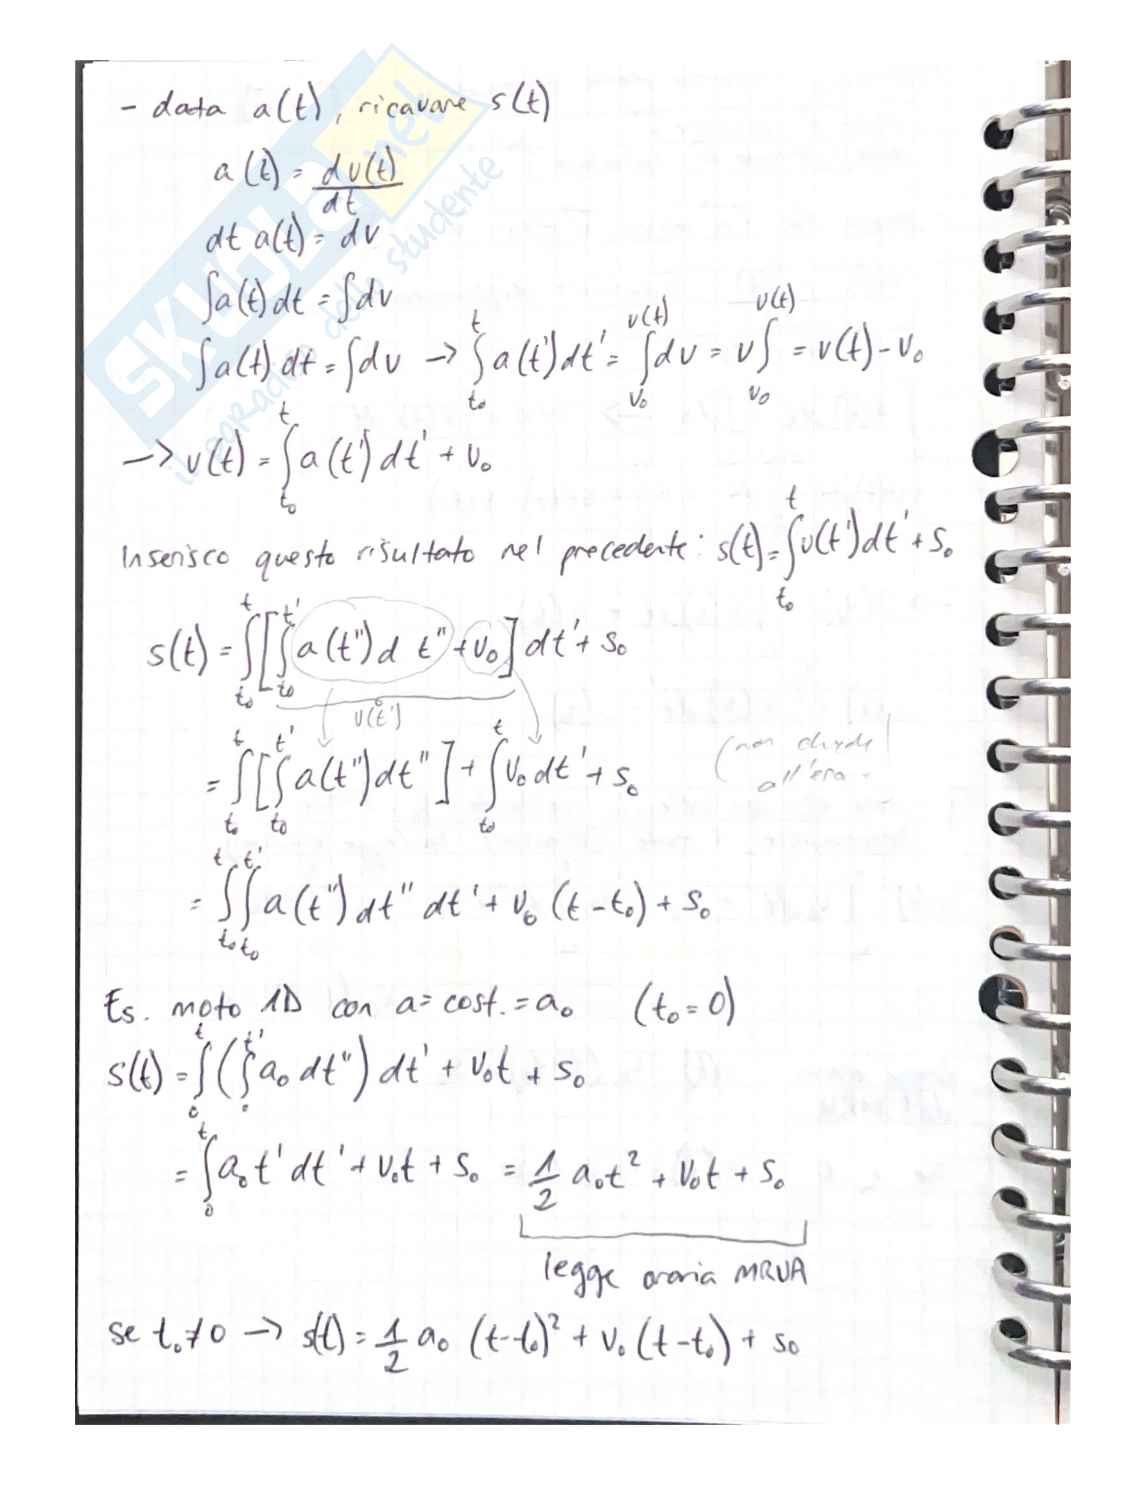 - data a(t), ricavare s(t)
a(t) = dv(t)/dt
dt a(t) = dv
∫a(t) dt = ∫dv
∫a(t) dt = ∫dv → ∫_{t₀}^{t} a(t') dt' = ∫_{v₀}^{v(t)} dv = v∫_{v₀}^{v(t)} = v(t) - v₀
→ v(t) = ∫_{t₀}^{t} a(t') dt' + v₀
Inserisco questo risultato nel precedente: s(t) = ∫_{t₀}^{t} v(t') dt' + s₀
s(t) = ∫_{t₀}^{t} [∫_{t₀}^{t'} a(t'') d t'' + v₀] dt' + s₀
v(t')
= ∫_{t₀}^{t} [∫_{t₀}^{t'} a(t'') dt''] + ∫_{t₀}^{t} v₀ dt' + s₀
(non chiede
all'
= ∫_{t₀}^{t} ∫_{t₀}^{t'} a(t'') dt'' dt' + v₀ (t - t₀) + s₀
Es. moto 1D con a = cost. = a₀ (t₀ = 0)
s(t) = ∫_{0}^{t} (∫_{0}^{t'} a₀ dt'') dt' + v₀t + s₀
= ∫_{0}^{t} a₀ t' dt' + v₀t + s₀ = 1/2 a₀t² + v₀t + s₀
legge oraria MRUA
se t₀ ≠ 0 → s(t) = 1/2 a₀ (t - t₀)² + v₀ (t - t₀) + s₀
SKUOLA.net
il paradiso dello studente